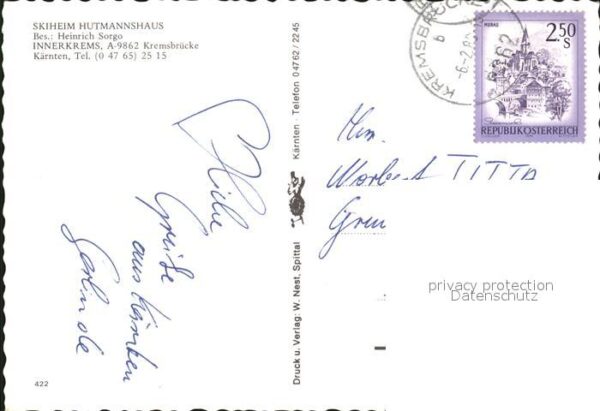 SKIHEIM HUTMANNSHAUS
Bes.: Heinrich Sorgo
INNERKREMS, A-9862 Kremsbrücke
Kärnten, Tel. (0 47 65) 25 15
Liebe
Grüße
aus Kärnten
Gerlinde
422
Druck u. Verlag: W. Nest, Spittal
Kärnten - Telefon 04762 / 2245
KREMSBRÜCKE
b
9862
MURAU
2.50
S
REPUBLIK ÖSTERREICH
Hrn.
Norbert TITTA
privacy protection
Datenschutz